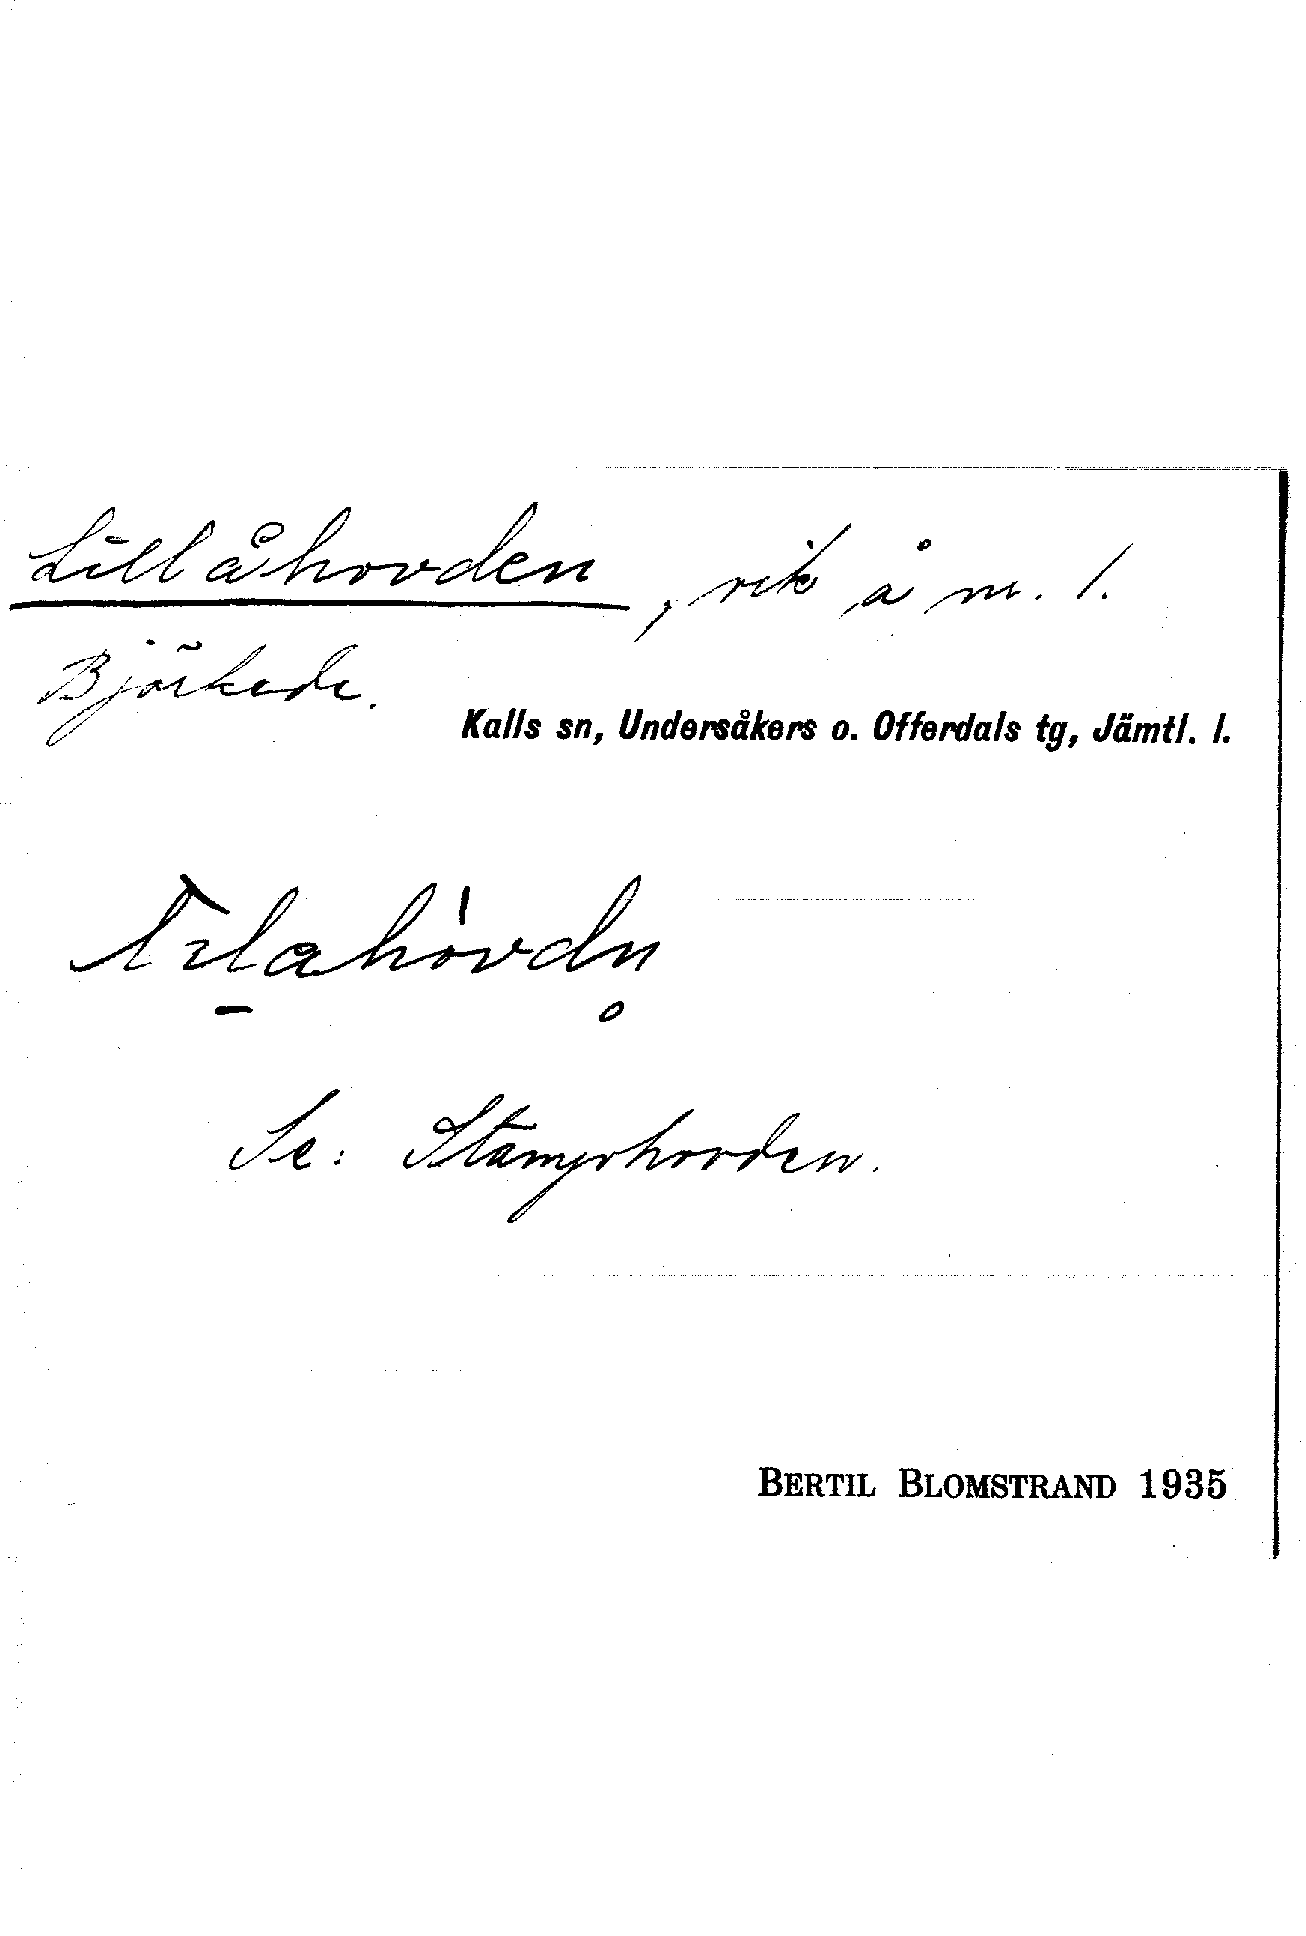 Lillåhovden, vik å nr. 1.
Björkede.
Kalls sn, Undersåkers o. Offerdals tg, Jämtl. l.
Se: Stamphovden.
BERTIL BLOMSTRAND 1935